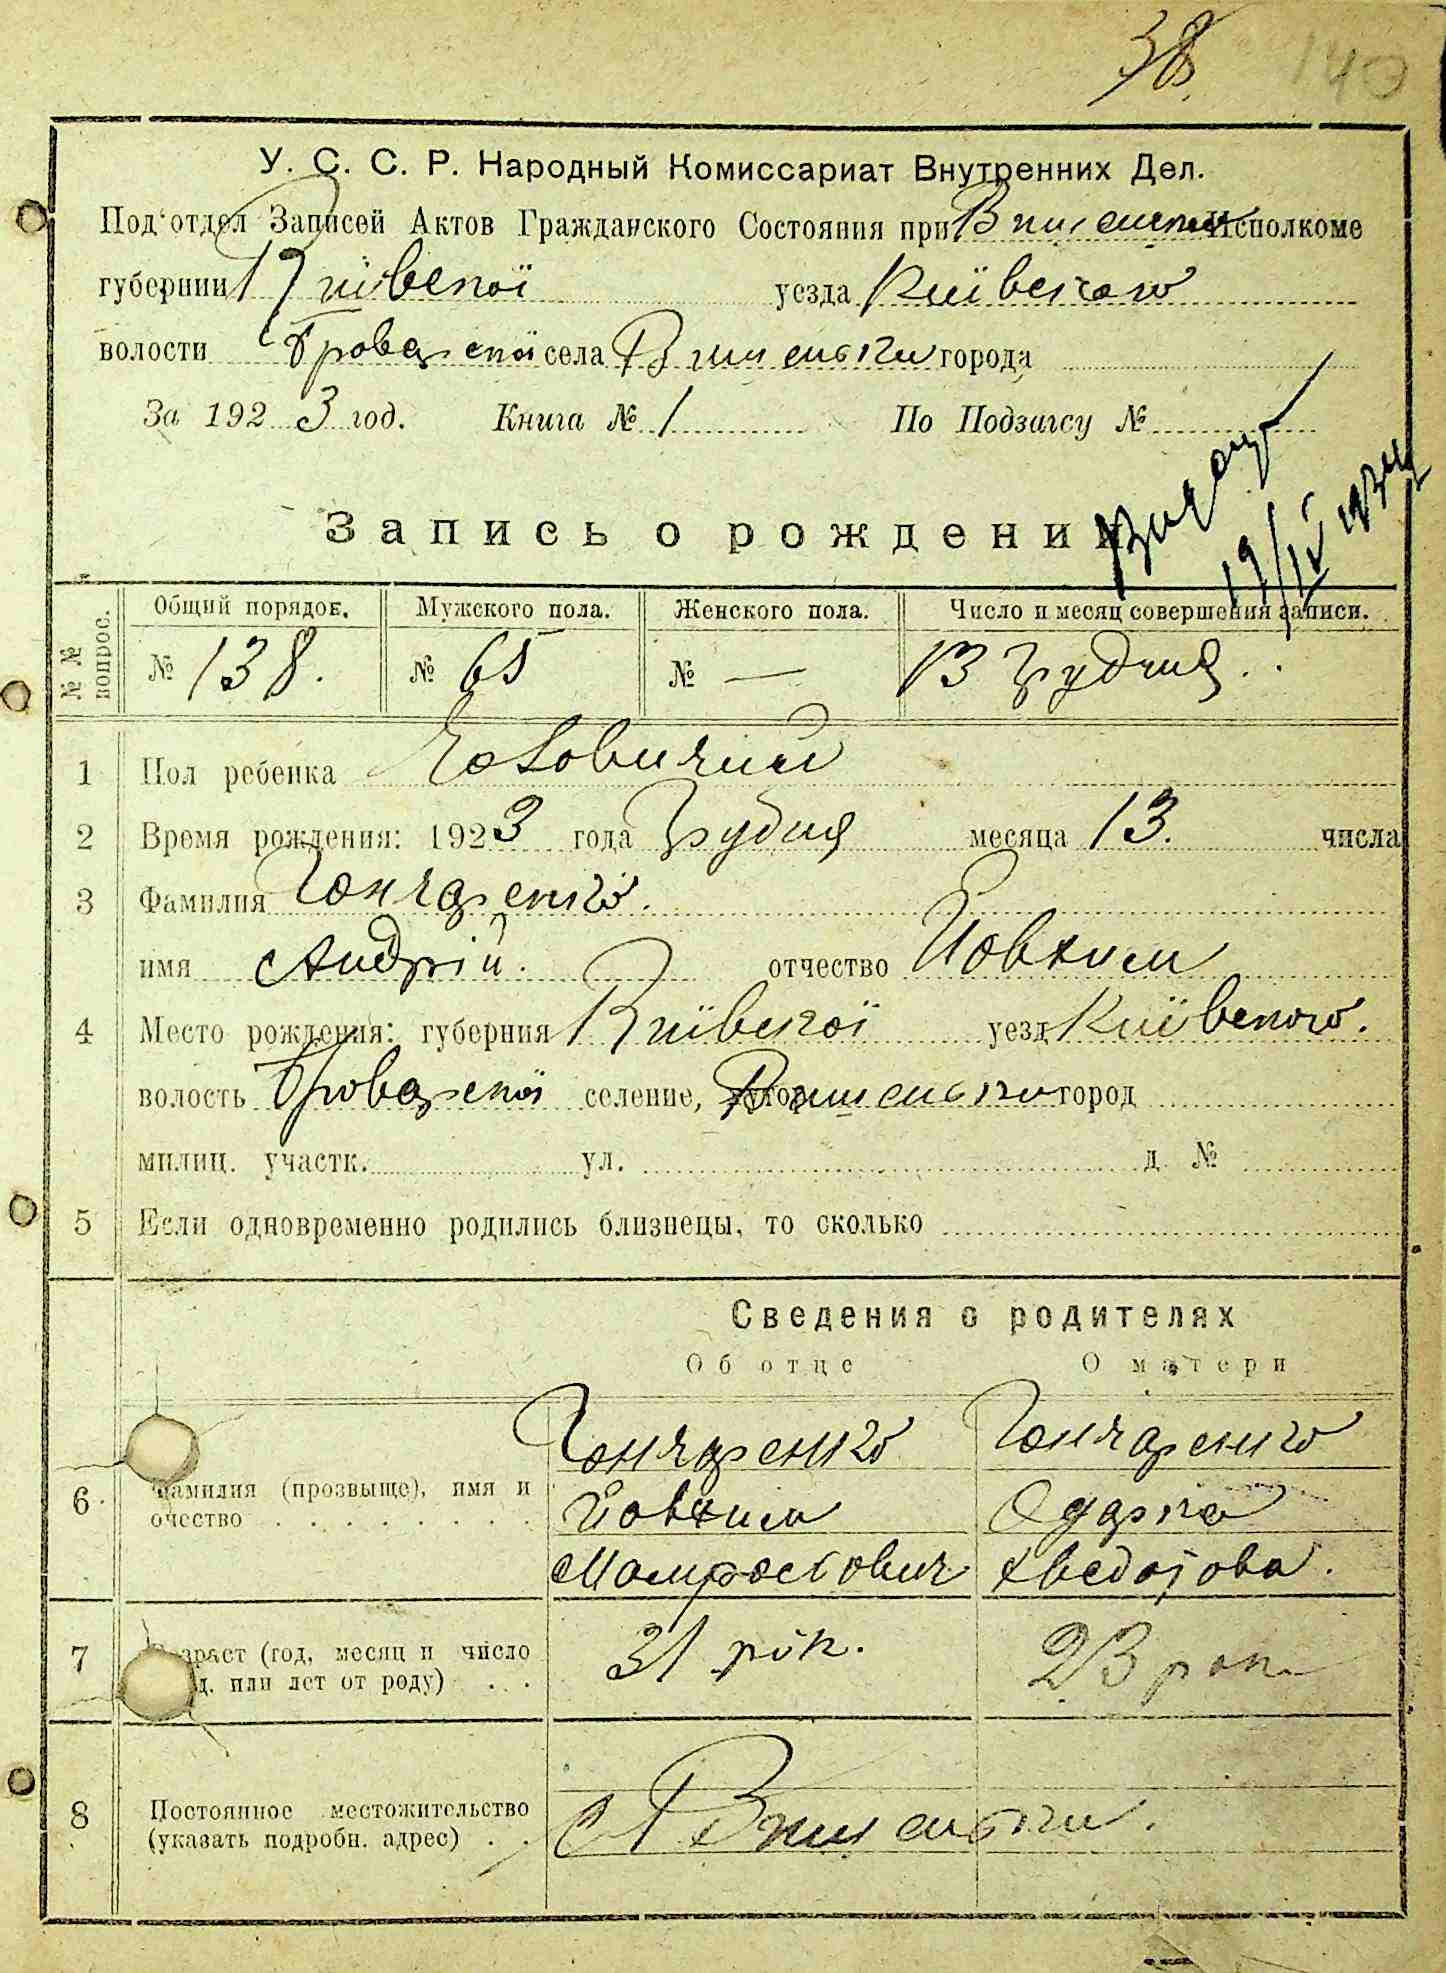 38.
140
У. С. С. Р. Народный Комиссариат Внутренних Дел.
Под'отдел Записей Актов Гражданского Состояния при Вишенском Исполкоме
губернии Київської уезда Київського
волости Броварської села Вишеньки города
За 1923 год. Книга № 1 По Подзагсу №
Запись о рождении
19/IV 1934
№№ вопрос. Общий порядок. Мужского пола. Женского пола. Число и месяц совершения записи.
№ 138. № 65 № — 13 Грудня.
1 Пол ребенка Чоловичий
2 Время рождения: 1923 года Грудня месяца 13. числа
3 Фамилия Гончаренко.
имя Андрій. отчество Йовхим
4 Место рождения: губерния Київської уезд Київського.
волость Броварської селение, хутор Вишеньки город
милиц. участк. ул. д. №
5 Если одновременно родились близнецы, то сколько
Сведения о родителях
Об отце О матери
6 Фамилия (прозвыще), имя и очество Гончаренко Гончаренко
Йовхим Одарка
Мамфостович Хведотова.
7 Возраст (год, месяц и число 31 рок. 23 рок.
или лет от роду)
8 Постоянное местожительство с Вишеньки.
(указать подробн. адрес)